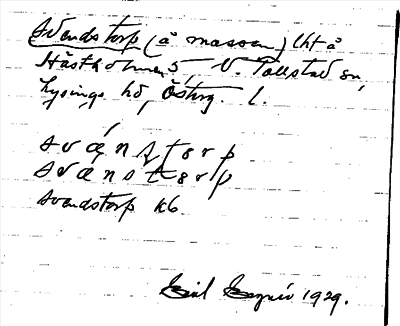 Svendstorp (å mossen) lht å
Hästholmen 5, V. Tollstad sn,
Lysings hd, Österg. l.
svǽnstorp
svænstorp
Svendstorp kb.
1929.